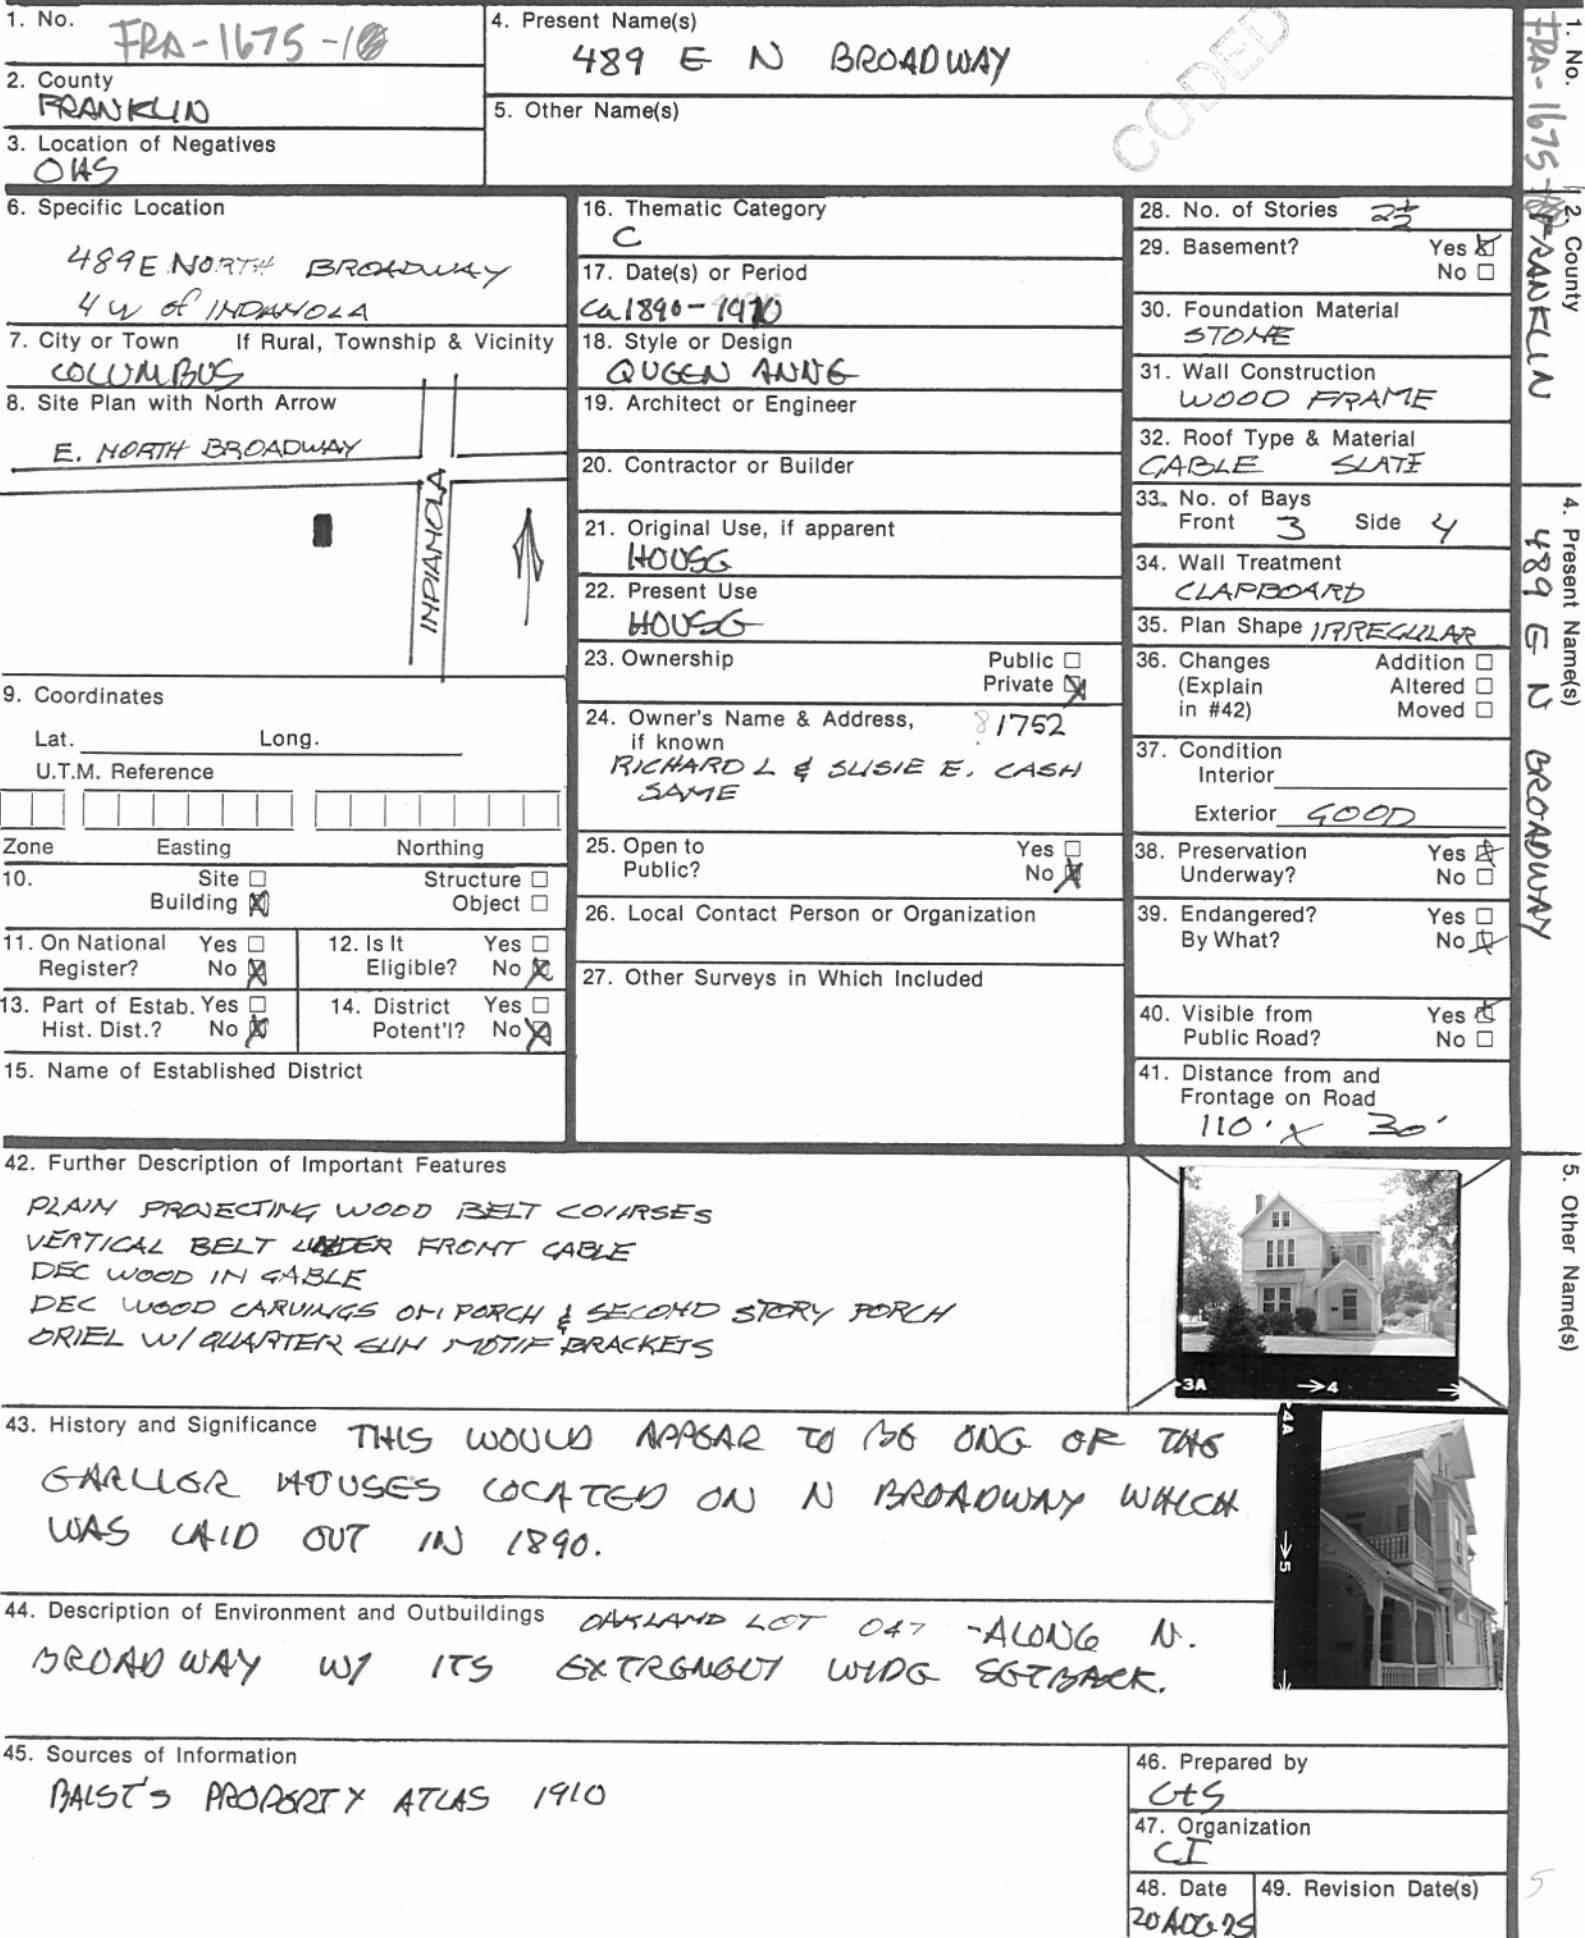 1. No.
FRA-1675-1
2. County
FRANKLIN
3. Location of Negatives
OHS
4. Present Name(s)
489 E N BROADWAY
5. Other Name(s)
CODED
6. Specific Location
489 E NORTH BROADWAY
4 W of INDIANOLA
7. City or Town If Rural, Township & Vicinity
COLUMBUS
8. Site Plan with North Arrow
E. NORTH BROADWAY
INDIANOLA
9. Coordinates
Lat. Long.
U.T.M. Reference
Zone Easting Northing
10. Site ☐ Structure ☐
Building ☒ Object ☐
11. On National Yes ☐
Register? No ☒
12. Is It Yes ☐
Eligible? No ☒
13. Part of Estab. Yes ☐
Hist. Dist.? No ☒
14. District Yes ☐
Potent'l? No ☒
15. Name of Established District
16. Thematic Category
C
17. Date(s) or Period
Ca 1890-1910
18. Style or Design
QUEEN ANNE
19. Architect or Engineer
20. Contractor or Builder
21. Original Use, if apparent
HOUSE
22. Present Use
HOUSE
23. Ownership Public ☐
Private ☒
24. Owner's Name & Address, 81752
if known
RICHARD L & SUSIE E. CASH
SAME
25. Open to Yes ☐
Public? No ☒
26. Local Contact Person or Organization
27. Other Surveys in Which Included
28. No. of Stories 2½
29. Basement? Yes ☒
No ☐
30. Foundation Material
STONE
31. Wall Construction
WOOD FRAME
32. Roof Type & Material
GABLE SLATE
33. No. of Bays
Front 3 Side 4
34. Wall Treatment
CLAPBOARD
35. Plan Shape IRREGULAR
36. Changes Addition ☐
(Explain Altered ☐
in #42) Moved ☐
37. Condition
Interior
Exterior GOOD
38. Preservation Yes ☒
Underway? No ☐
39. Endangered? Yes ☐
By What? No ☒
40. Visible from Yes ☒
Public Road? No ☐
41. Distance from and
Frontage on Road
110' x 30'
42. Further Description of Important Features
PLAIN PROJECTING WOOD BELT COURSES
VERTICAL BELT UNDER FRONT GABLE
DEC WOOD IN GABLE
DEC WOOD CARVINGS ON PORCH & SECOND STORY PORCH
ORIEL W/ QUARTER SUN MOTIF BRACKETS
3A →4
4A →5
43. History and Significance THIS WOULD APPEAR TO BE ONE OF THE
EARLIER HOUSES LOCATED ON N BROADWAY WHICH
WAS LAID OUT IN 1890.
44. Description of Environment and Outbuildings OAKLAND LOT 047 - ALONG N.
BROADWAY W/ ITS EXTREMELY WIDE SETBACK.
45. Sources of Information
BAIST'S PROPERTY ATLAS 1910
46. Prepared by
47. Organization
CI
48. Date
20 AUG 75
49. Revision Date(s)
5
1. No.
FRA-1675-
2. County
FRANKLIN
4. Present Name(s)
489 E N BROADWAY
5. Other Name(s)